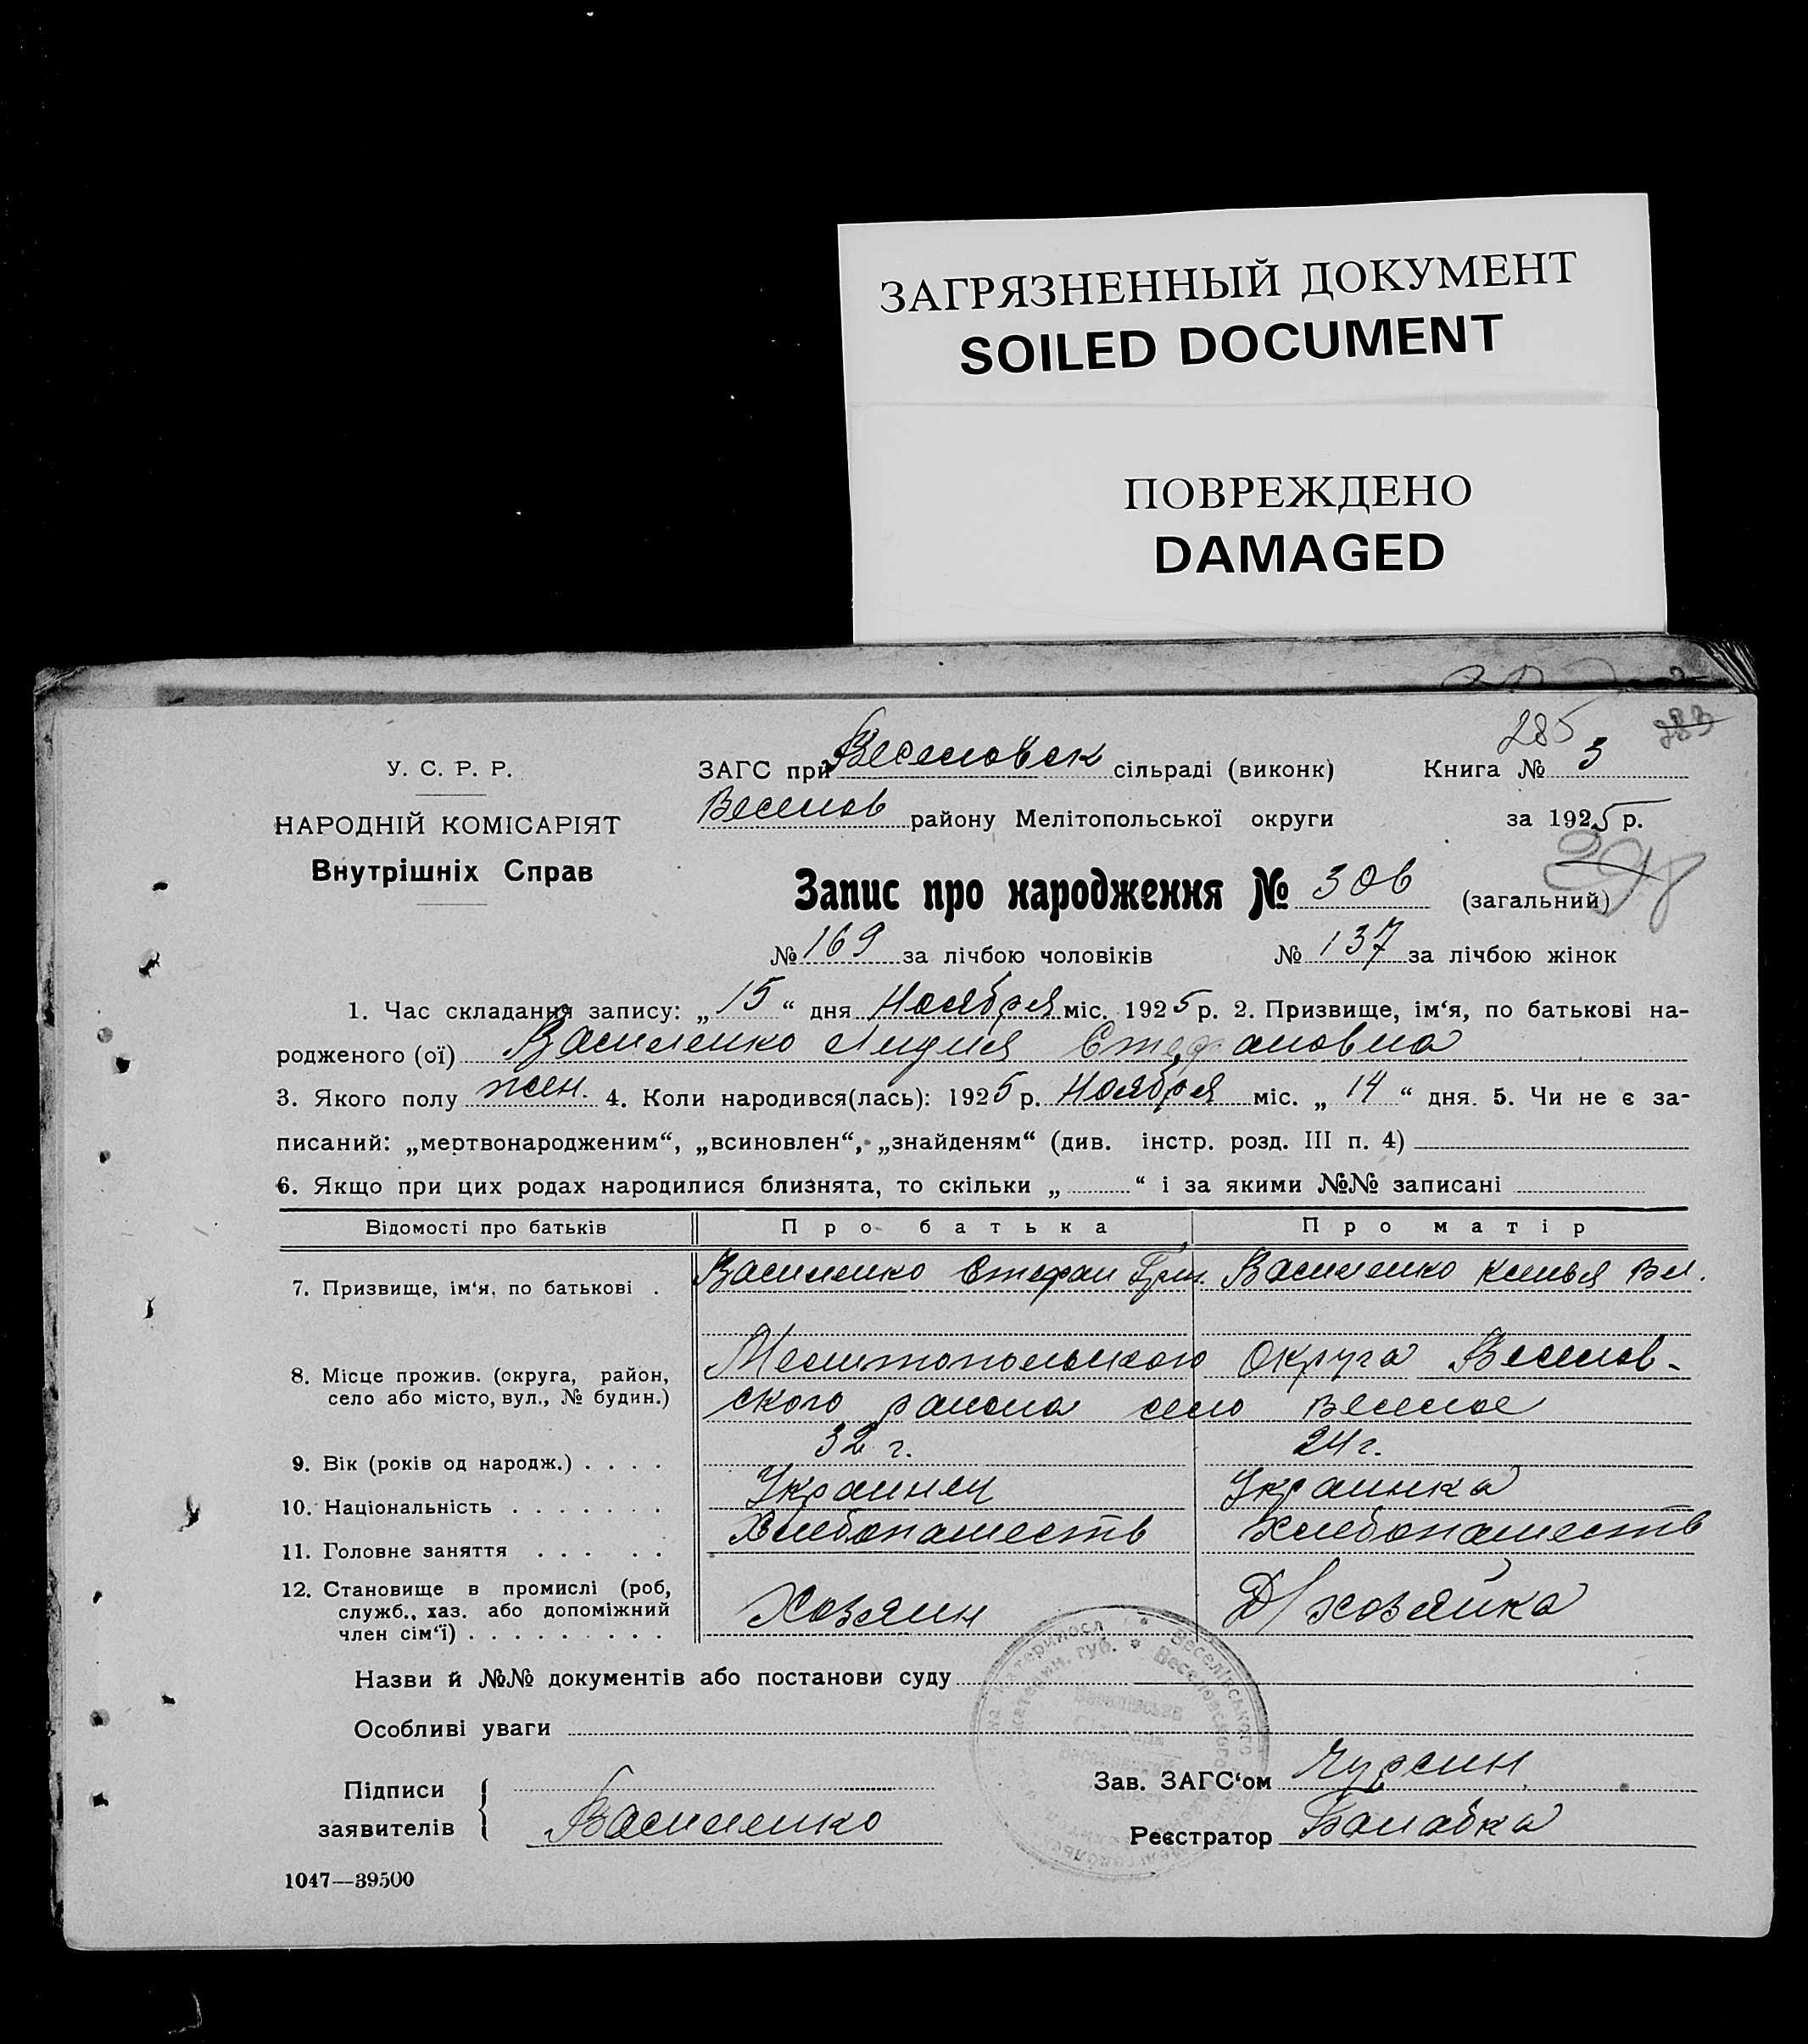 ЗАГРЯЗНЕННЫЙ ДОКУМЕНТ
SOILED DOCUMENT
ПОВРЕЖДЕНО
DAMAGED
285 283
У. С. Р. Р.
НАРОДНІЙ КОМІСАРІЯТ
Внутрішніх Справ
ЗАГС при Веселовск сільраді (виконк) Книга № 3
Веселов району Мелітопольської округи за 1925 р.
Запис про народження № 306 (загальний)
№ 169 за лічбою чоловіків № 137 за лічбою жінок
1. Час складання запису: „15“ дня Ноября міс. 1925 р. 2. Призвище, ім‘я, по батькові на-
родженого (ої) Василенко Лидия Стефановна
3. Якого полу жен. 4. Коли народився(лась): 1925 р. Ноября міс. „14“ дня. 5. Чи не є за-
писаний: „мертвонародженим“, „всиновлен“, „знайденям“ (див. інстр. розд. III п. 4)
6. Якщо при цих родах народилися близнята, то скільки „ “ і за якими №№ записані
Відомості про батьків Про батька Про матір
7. Призвище, ім‘я, по батькові . Василенко Стефан Григ. Василенко
8. Місце прожив. (округа, район, село або місто, вул., № будин.) Мелитопольского Округа Веселов-
ского района село Веселое
9. Вік (років од народж.) . . . . 32 г. 24 г.
10. Національність . . . . . . . Украинец Украинка
11. Головне заняття . . . . . Хлебопашеств Хлебопашеств
12. Становище в промислі (роб, служб., хаз. або допоміжний член сім‘ї) . . . . . . . . . Хозяин Д/хозяйка
Назви й №№ документів або постанови суду
Особливі уваги
Підписи
заявителів Василенко
Зав. ЗАГС‘ом Чурсин
Реєстратор Балабка
1047—39500